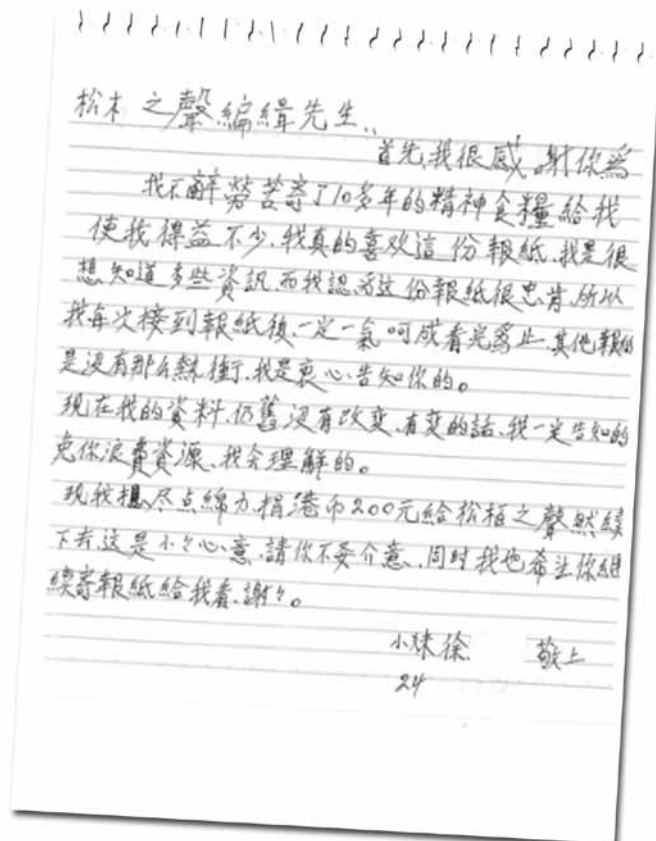 松木之聲編緝先生：
首先,我很感謝你爲
我不辭勞苦寄了10多年的精神食糧給我
使我得益不少.我真的喜欢這份報紙.我是很
想知道多些資訊.而我認为这份報紙很忠肯.所以
我每次接到報紙後.一定一氣呵成看光爲止.其他報紙
是没有那么熱衝.我是衷心告知你的。
現在我的資料.仍舊没有改变.有变的話.我一定告知的
免你浪費資源.我会理解的。
現我想尽点綿力.捐港币200元給松栢之聲然續
下去.这是小々心意.請你不要介意.同时我也希望你繼
續寄報紙給我看.謝々。
小妹徐 敬上
24